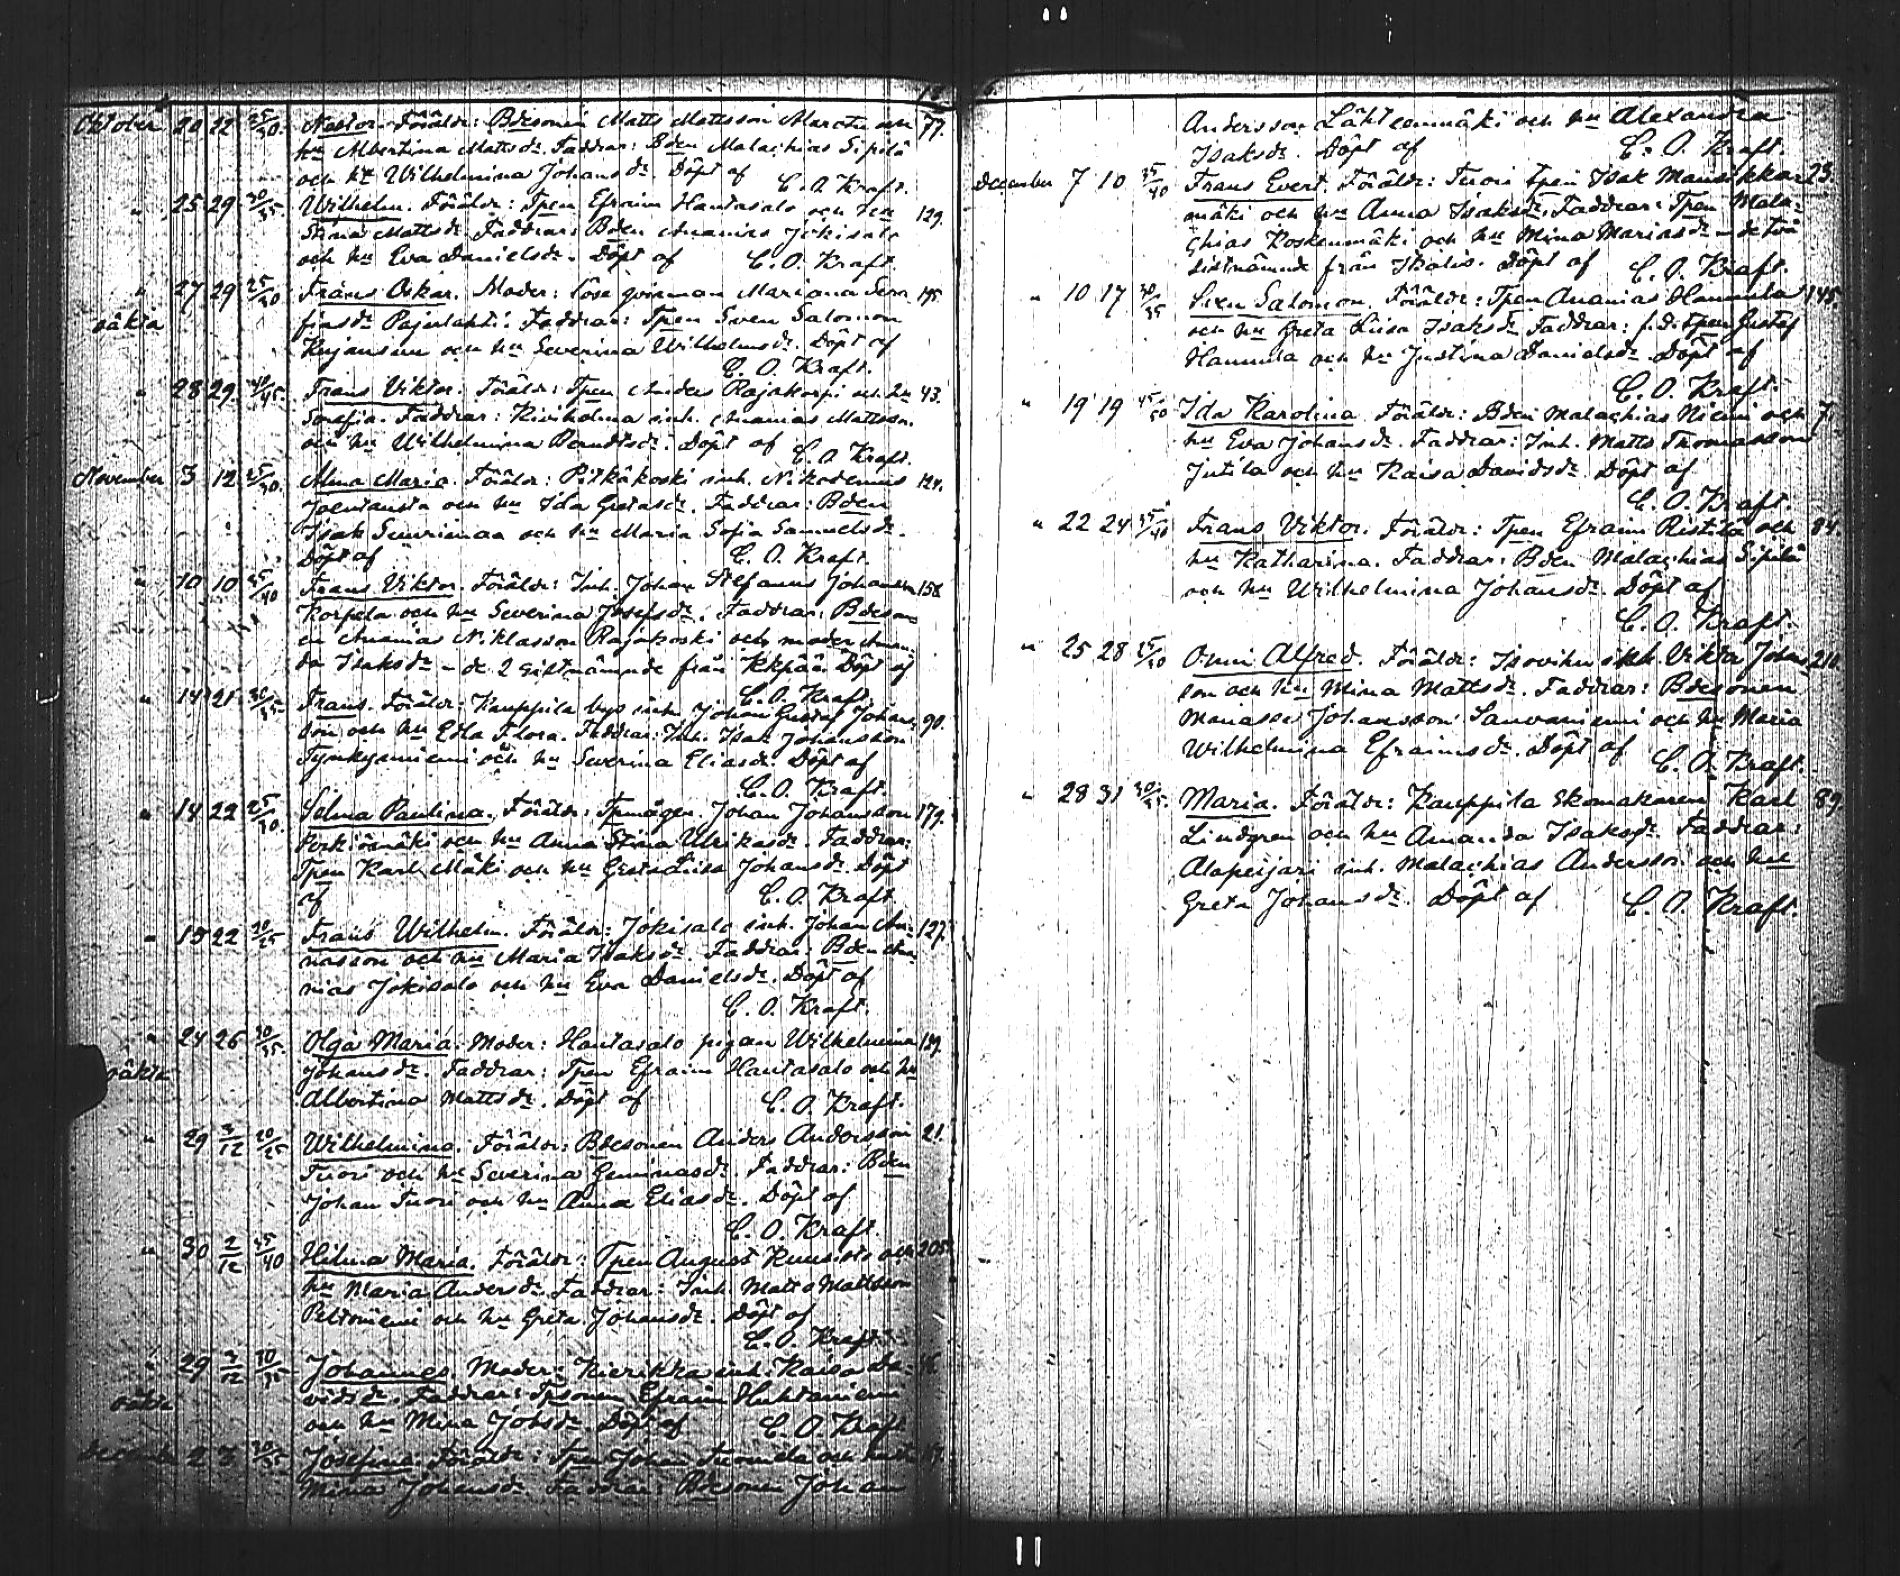 Oktober 20 22 25/30. Nestor. Föräldr: Bdesonen Matts Mattsson Marttu och 77.
hu Albertina Mattsdr. Faddrar: Bden Malachias Sipilä
och hu Wilhelmina Johansdr. Döpt af C. O. Kraft.
" 25 29 30/35. Wilhelm. Föräldr: Tpen Efraim Hautasalo och hu 129.
Stina Mattsdr. Faddrar: Bden Ananias Jokisalo
och hu Eva Danielsdr. Döpt af C. O. Kraft.
" 27 29 25/30 Frans Oskar. Moder: lösa qvinnan Mariana Sera 175.
oäkta finsdr Pajulahti. Faddrar: Tpen Sven Salomon
Kujansuu och hu Severina Wilhelmsdr. Döpt af
C. O. Kraft.
" 28 29 40/45. Frans Viktor. Föräldr: Tpen Anders Rajakorpi och hu 43.
Serafia. Faddrar: Kiviholma inh. Ananias Mattsson
och hu Wilhelmina Berndtsdr. Döpt af C. O. Kraft.
November 3 12 25/30. Alma Maria. Föräldr: Pitkäkoski inh. Nikodemus 124.
Joentausta och hu Ida Gretasdr. Faddrar: Bden
Isak Suurimaa och hu Maria Sofia Samuelsdr.
Döpt af C. O. Kraft.
" 10 10 35/40 Frans Viktor. Föräldr: Inh. Johan Stefanus Johansson 158
Korpela och hu Severina Josefsdr. Faddrar: Bdeson
en Ananias Niklasson Rajakoski och moder Aman
da Isaksdr – de 2 sistnämnde från Döpt af
C. O. Kraft.
" 14 21 30/35. Frans. Föräldr: Kauppila bys inh. Johan Gustaf Johans 90.
son och hu Edla Flora. Faddrar: Inh. Isak Johansson
Tynkyniemi och hu Severina Eliasdr. Döpt af
C. O. Kraft.
" 14 22 25/30. Selma Paulina. Föräldr: Tpmågen Johan Johansson 179.
Perkiömäki och hu Anna Stina Ulrikasdr. Faddrar:
Tpen Karl Mäki och hu Greta Liisa Johansdr. Döpt
af C. O. Kraft
" 15 22 20/25 Frans Wilhelm. Föräldr: Jokisalo inh. Johan An= 127.
nasson och hu Maria Isaksdr. Faddrar: Bden Ana
nias Jokisalo och hu Eva Danielsdr. Döpt af
C. O. Kraft.
" 24 26 30/35. Olga Maria. Moder: Hautasalo pigan Wilhelmina 129.
oäkta Johansdr. Faddrar: Tpen Efraim Hautasalo och hu
Albertina Mattsdr. Döpt af C. O. Kraft.
" 29 3/12 20/25 Wilhelmina. Föräldr: Bdesonen Anders Andersson 21.
Tuori och hu Severina Geminasdr. Faddrar: Bden
Johan Tuori och hu Anna Eliasdr. Döpt af
C. O. Kraft.
" 30 2/12 35/40 Hilma Maria. Föräldr: Tpen August Kuusisto och 205
hu Maria Andersdr. Faddrar: Inh. Matts Mattsson
Peltoniemi och hu Greta Johansdr. Döpt af
C. O. Kraft.
" 29 30/35 Johannes. Moder: Kierikka inh. Kaisa Da=
oäkta vidsdr. Faddrar: Tpsonen Efraim Huhtaniemi
och hu Mina Johsdr. Döpt af C. O. Kraft
December 2 3 30/35 Josefina. Föräldr: Tpen Johan Tuomela och hu
Mina Johansdr. Faddrar: Bdesonen Johan
Andersson Lähteenmäki och hu Alexandra
Isaksdr. Döpt af C. O. Kraft.
December 7 10 35/40 Frans Evert. Föräldr: Tuori Tpen Isak Mansikka 23.
mäki och hu Anna Isaksdr. Faddrar: Tpen Mala=
chias Koskenmäki och hu Mina Mariasdr – de två
sistnämnde från Ikalis. Döpt af C. O. Kraft.
" 10 17 30/35 Sven Salomon. Föräldr: Tpen Ananias Hannula 145.
och hu Greta Liisa Isaksdr. Faddrar: f.d. Tpen Gustaf
Hannula och hu Justina Danielsdr. Döpt af
C. O. Kraft.
" 19 19 45/50 Ida Karolina. Föräldr: Bden Malachias Niemi och 71.
hu Eva Johansdr. Faddrar: Inh. Matts Thomasson
Jutila och hu Kaisa Davidsdr. Döpt af
C. O. Kraft.
" 22 24 35/40 Frans Viktor. Föräldr: Tpen Efraim Ristilä och 84.
hu Katharina. Faddrar: Bden Malachias Sipilä
och hu Wilhelmina Johansdr. Döpt af
C. O. Kraft.
" 25 28 25/30 Onni Alfred. Föräldr: inh. Viktor Johns 211.
son och hu Mina Mattsdr. Faddrar: Bdesonen
Manasse Johansson Sauvaniemi och hu Maria
Wilhelmina Efraimsdr. Döpt af C. O. Kraft.
" 28 31 30/35. Maria. Föräldr: Kauppila skomakaren Karl 89.
Lindgren och hu Amanda Isaksdr. Faddrar:
Alapeijari inh. Malachias Andersson och hu
Greta Johansdr. Döpt af C. O. Kraft.